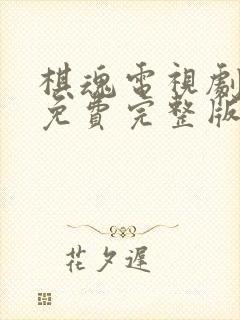 棋魂電視劇
免費完整版
花夕遲